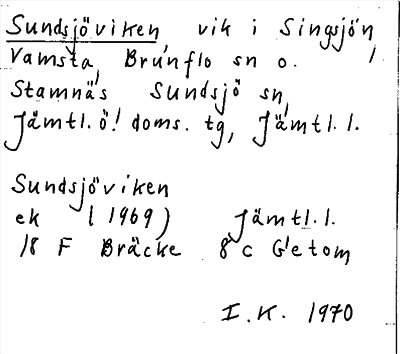 Sundsjöviken, vik i Singsjön,
Vamsta, Brunflo sn o.
Stamnäs Sundsjö sn,
Jämtl. ö! doms. tg, Jämtl. l.
Sundsjöviken
ek (1969) Jämtl. l.
18 F Bräcke 8 c Getom
I. K. 1970